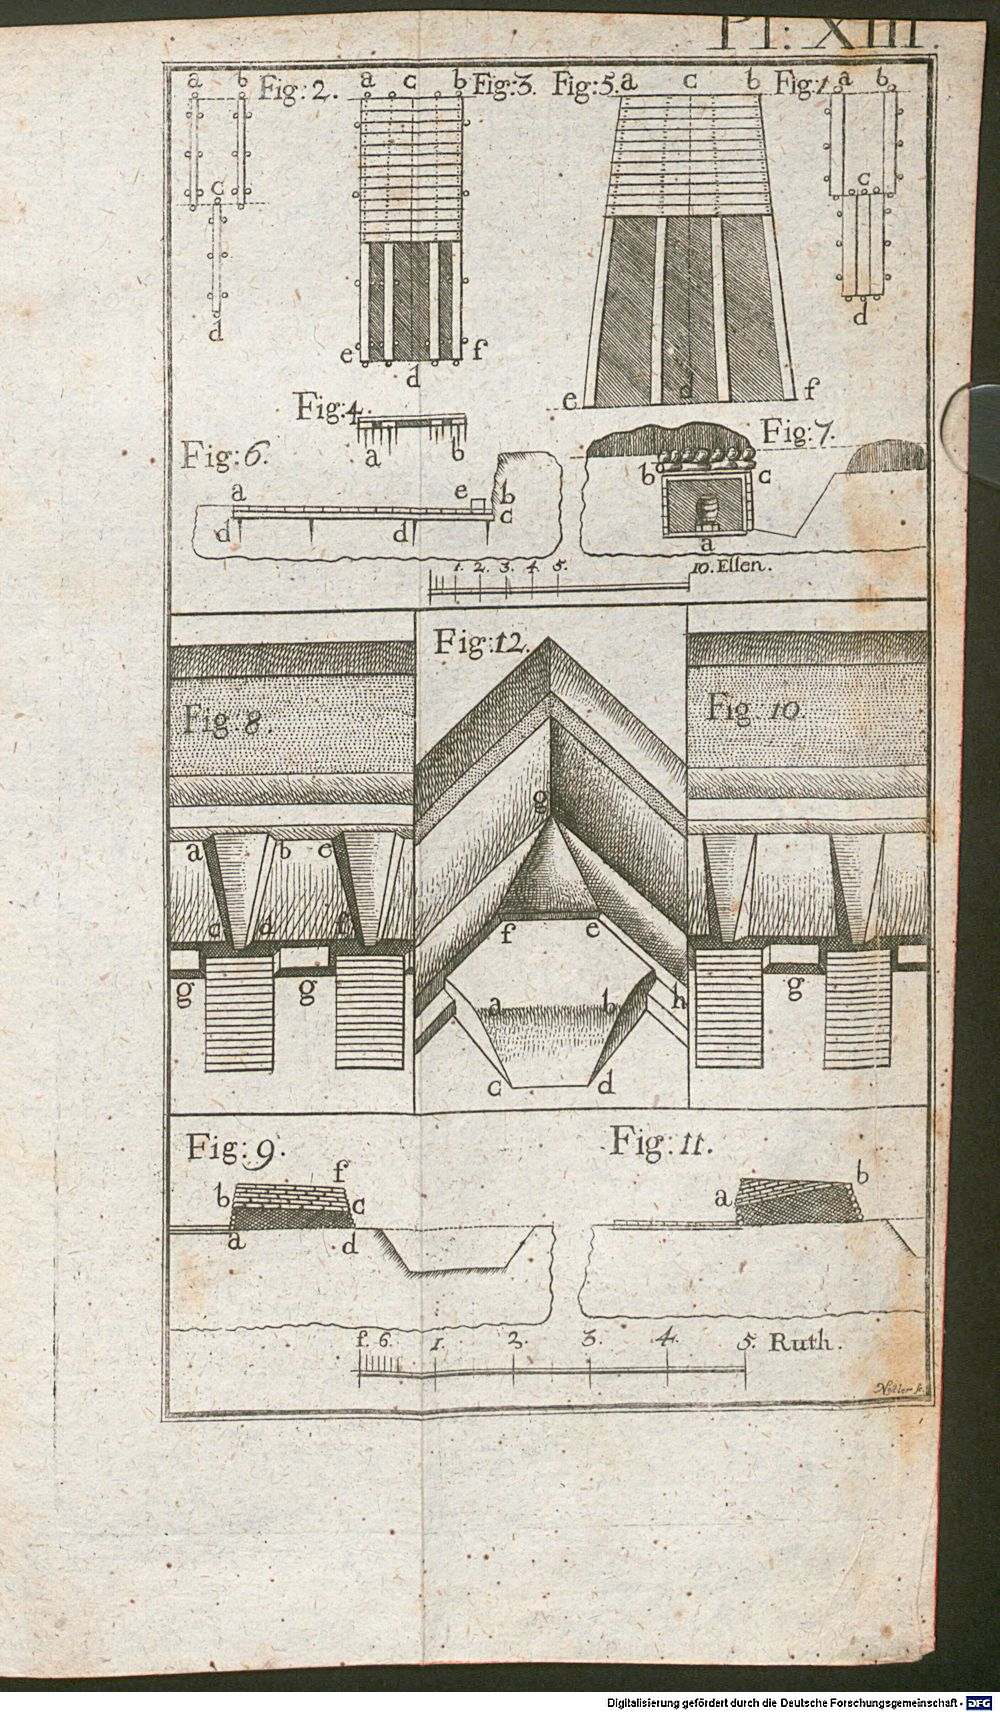 Pl: XIII.
a b Fig: 2. a c b Fig: 3. Fig: 5. a c b Fig: 1. a b
c c
d d
e f
d
e d f
Fig: 4.
a b
Fig: 6. Fig: 7.
a e b b c
d d c a
1. 2. 3. 4. 5. 10. Ellen.
Fig: 12.
Fig. 8. Fig. 10.
g
a b e
c d f f e
g g a b h g
c d
Fig: 9. Fig: 11.
b f a b
a c
d
f. 6. 1. 2. 3. 4. 5. Ruth.